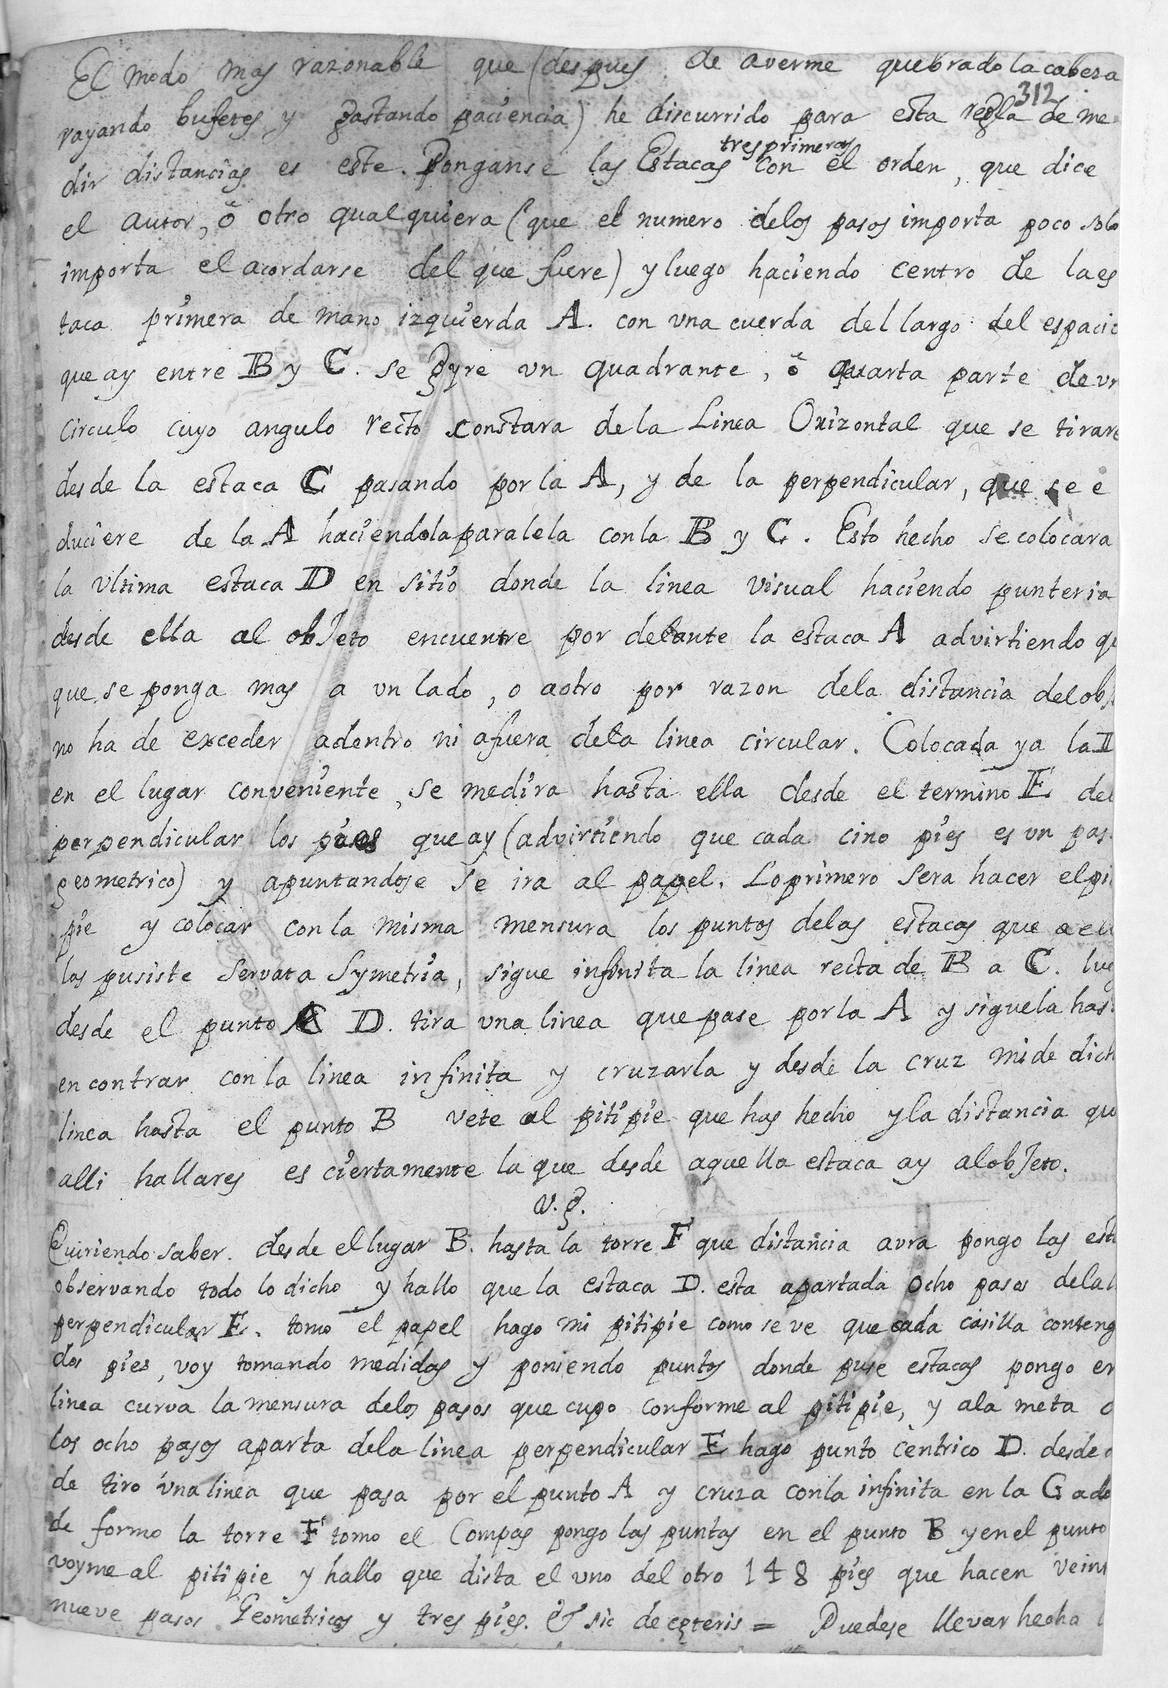 El modo mas razonable que (despues de averme quebrado la cabeza
312
rayando bufetes y gastando paciencia) he discurrido para esta regla de me-
tres primeras
dir distancias es este. Ponganse las Estacas con el orden, que dice
el autor, ŏ otro qualquiera (que el numero delos pasos importa poco solo
importa el acordarse del que fuere) y luego haciendo centro de la es
taca primera de mano izquierda A. con vna cuerda del largo del espacio
que ay entre B y C. se gyre vn quadrante, ŏ quarta parte de vn
circulo cuyo angulo recto constara de la Linea Orizontal que se tirare
desde la estaca C pasando por la A, y de la perpendicular, que se e
duciere de la A haciendola paralela con la B y C. Esto hecho se colocara
la vltima estaca D en sitio donde la linea visual haciendo punteria
desde ella al obJeto encuentre por delante la estaca A advirtiendo qu
que se ponga mas a vn lado, o aotro por razon dela distancia del obJ
no ha de exceder adentro ni afuera dela linea circular. Colocada ya la D
en el lugar conveniente, se medira hasta ella desde el termino E del
perpendicular los pasos que ay (advirtiendo que cada cinco pies es vn pas
geometrico) y apuntandose se ira al papel. Lo primero sera hacer el piti
pie y colocar con la misma mensura los puntos delas estacas que
las pusiste servata symetria, sigue infinita la linea recta de B a C. lueg
desde el punto D. tira vna linea que pase por la A y siguela has
encontrar con la linea infinita y cruzarla y desde la cruz mide dich
linea hasta el punto B vete al pitipie que has hecho y la distancia qu
alli hallares es ciertamente la que desde aquella estaca ay al obJeto.
v.g.
Quiriendo saber. desde el lugar B. hasta la torre F que distancia avra pongo las est
observando todo lo dicho y hallo que la estaca D. esta apartada ocho pasos dela
perpendicular E. tomo el papel hago mi pitipie como se ve que cada casilla conteng
dos pies, voy tomando medidas y poniendo puntos donde puse estacas pongo en
linea curva la mensura delos pasos que cupo conforme al pitipie, y ala meta d
los ocho pasos aparta dela linea perpendicular E hago punto centrico D. desde
de tiro vna linea que pasa por el punto A y cruza conla infinita en la G ado
de formo la torre F tomo el Compas pongo las puntas en el punto B y en el punto
voyme al pitipie y hallo que dista el vno del otro 148 pies que hacen vein
nueve pasos Geometricos y tres pies. & sic de ceteris = Puedese llevar hecha